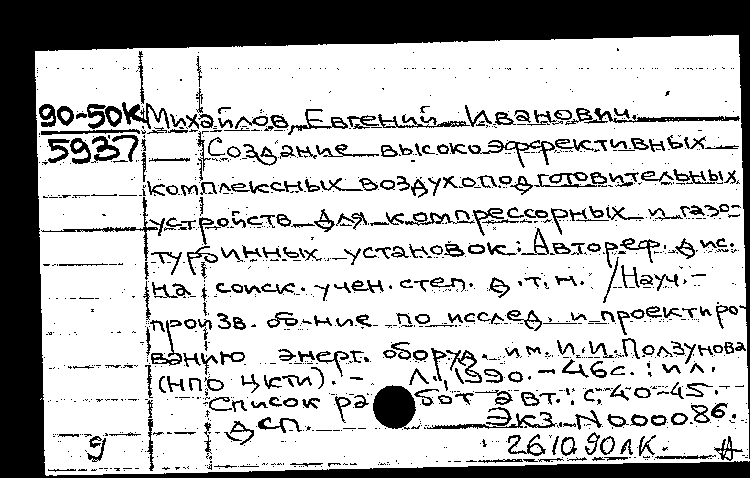 90-50К Михайлов, Евгений Иванович.
5937 Создание высокоэффективных
комплексных воздухоподготовительных
устройств для компрессорных и газо-
турбинных установок: Автореф. дис.
на соиск. учен. степ. д.т.н. /Науч.-
произв. об-ние по исслед. и проектиро-
ванию энерг. оборуд. им. И.И. Ползунова
(НПО ЦКТИ). - Л., 1990. - 46с.: ил.
Список работ авт.: с. 40-45.
дсп. Экз. N000086.
9 26.10.90 ЛК. А